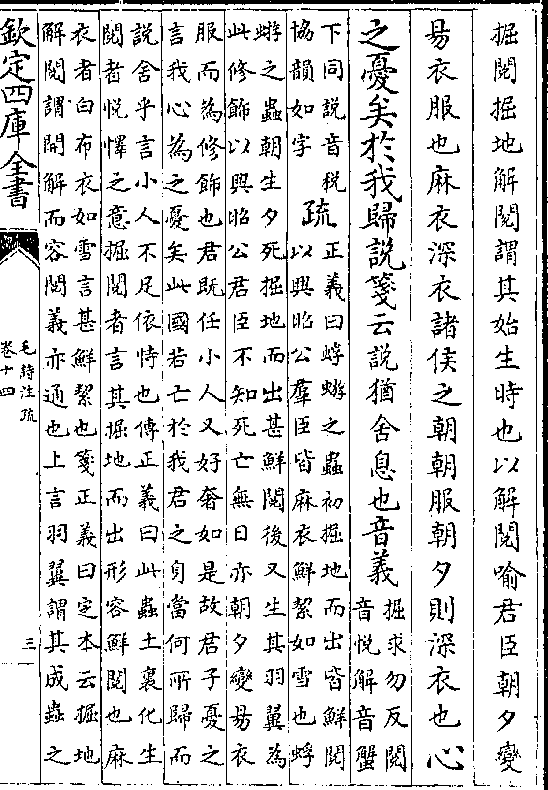 掘閱掘地解閱謂其始生時也以解閱喻君臣朝夕變
易衣服也麻衣深衣諸侯之朝朝服朝夕則深衣也心
之憂矣於我歸說箋云說猶舍息也音義
掘求勿反閱
音悅解音蟹
下同說音稅
協韻如字
疏
正義曰蜉蝣之蟲初掘地而出皆鮮閱
以興昭公羣臣皆麻衣鮮絜如雪也蜉
蝣之蟲朝生夕死掘地而出甚鮮閱後又生其羽翼為
此修飾以興昭公君臣不知死亡無日亦朝夕變易衣
服而為修飾也君既任小人又好奢如是故君子憂之
言我心為之憂矣此國若亡於我君之身當何所歸而
說舍乎言小人不足依恃也傳正義曰此蟲土裏化生
閱者悅懌之意掘閱者言其掘地而出形容鮮閱也麻
衣者白布衣如雪言甚鮮絜也箋正義曰定本云掘地
解閱謂開解而容閱義亦通也上言羽翼謂其成蟲之
欽定四庫全書
毛詩注疏
卷十四
三